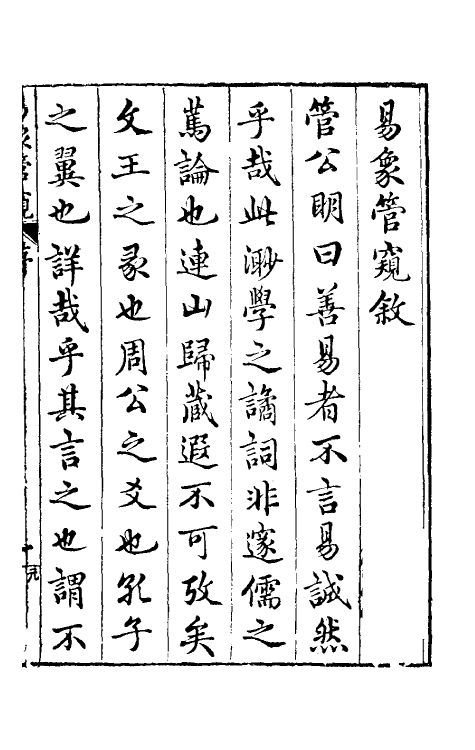 易象管窺敘
管公明曰善易者不言易誠然
乎哉此渺學之譎詞非邃儒之
篤論也連山歸藏遐不可攷矣
文王之彖也周公之爻也孔子
之翼也詳哉乎其言之也謂不
易象管窺